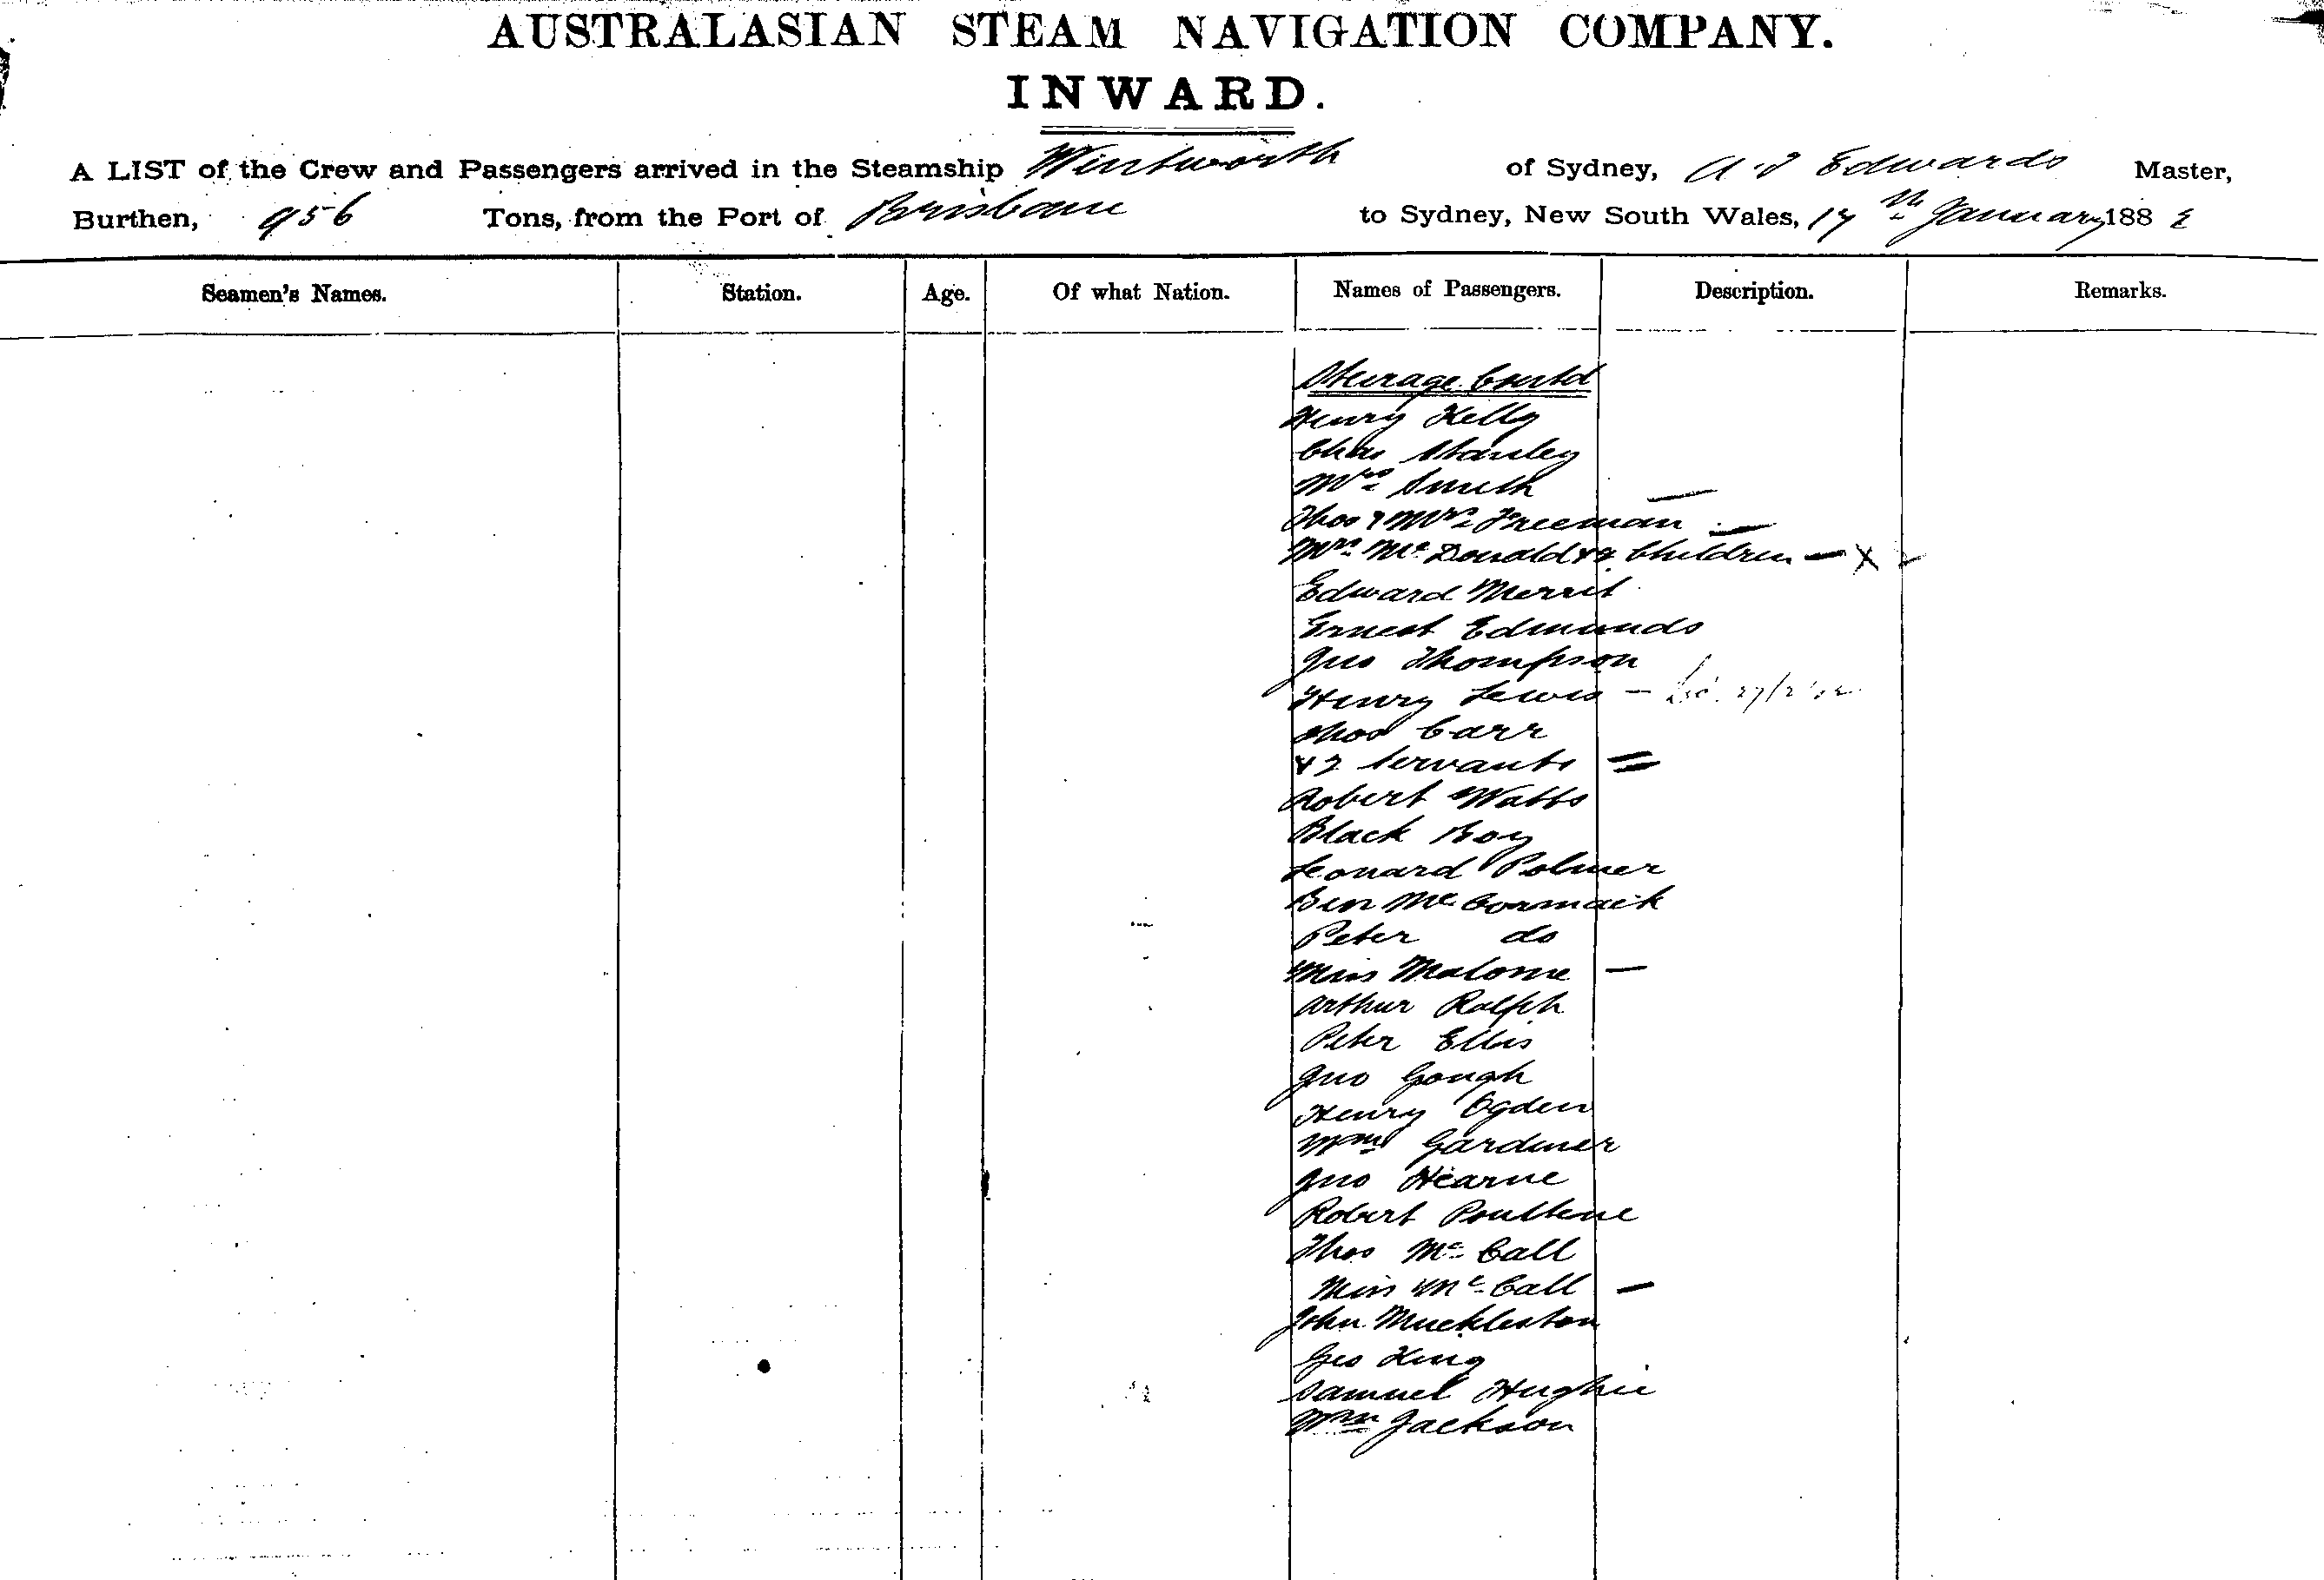 AUSTRALASIAN STEAM NAVIGATION COMPANY.
INWARD.
A LIST of the Crew and Passengers arrived in the Steamship Wentworth of Sydney, Edwards Master,
Burthen, 956 Tons, from the Port of Brisbane to Sydney, New South Wales, 17th January 1882
Seamen's Names. Station. Age. Of what Nation. Names of Passengers. Description. Remarks.
Steerage Contd
Henry Kelly
Chas Stanley
Mrs Smith —
Thos & Mrs Freeman —
Mrs McDonald & 2 Children — X
Edward Merrit
Ernest Edmunds
Jno Thompson
Henry Lewis —
Thos Carr
& 2 Servants =
Robert Watts
Black Boy
Leonard Polmer
Ben McCormack
Peter do
Miss Malone —
Arthur Ralph
Peter Ellis
Jno Gough
Henry Ogden
Wm Gardiner
Jno Hearne
Robert
Thos McCall
Miss McCall —
John Muckleston
Geo King
Samuel Hughie
Wm Jackson